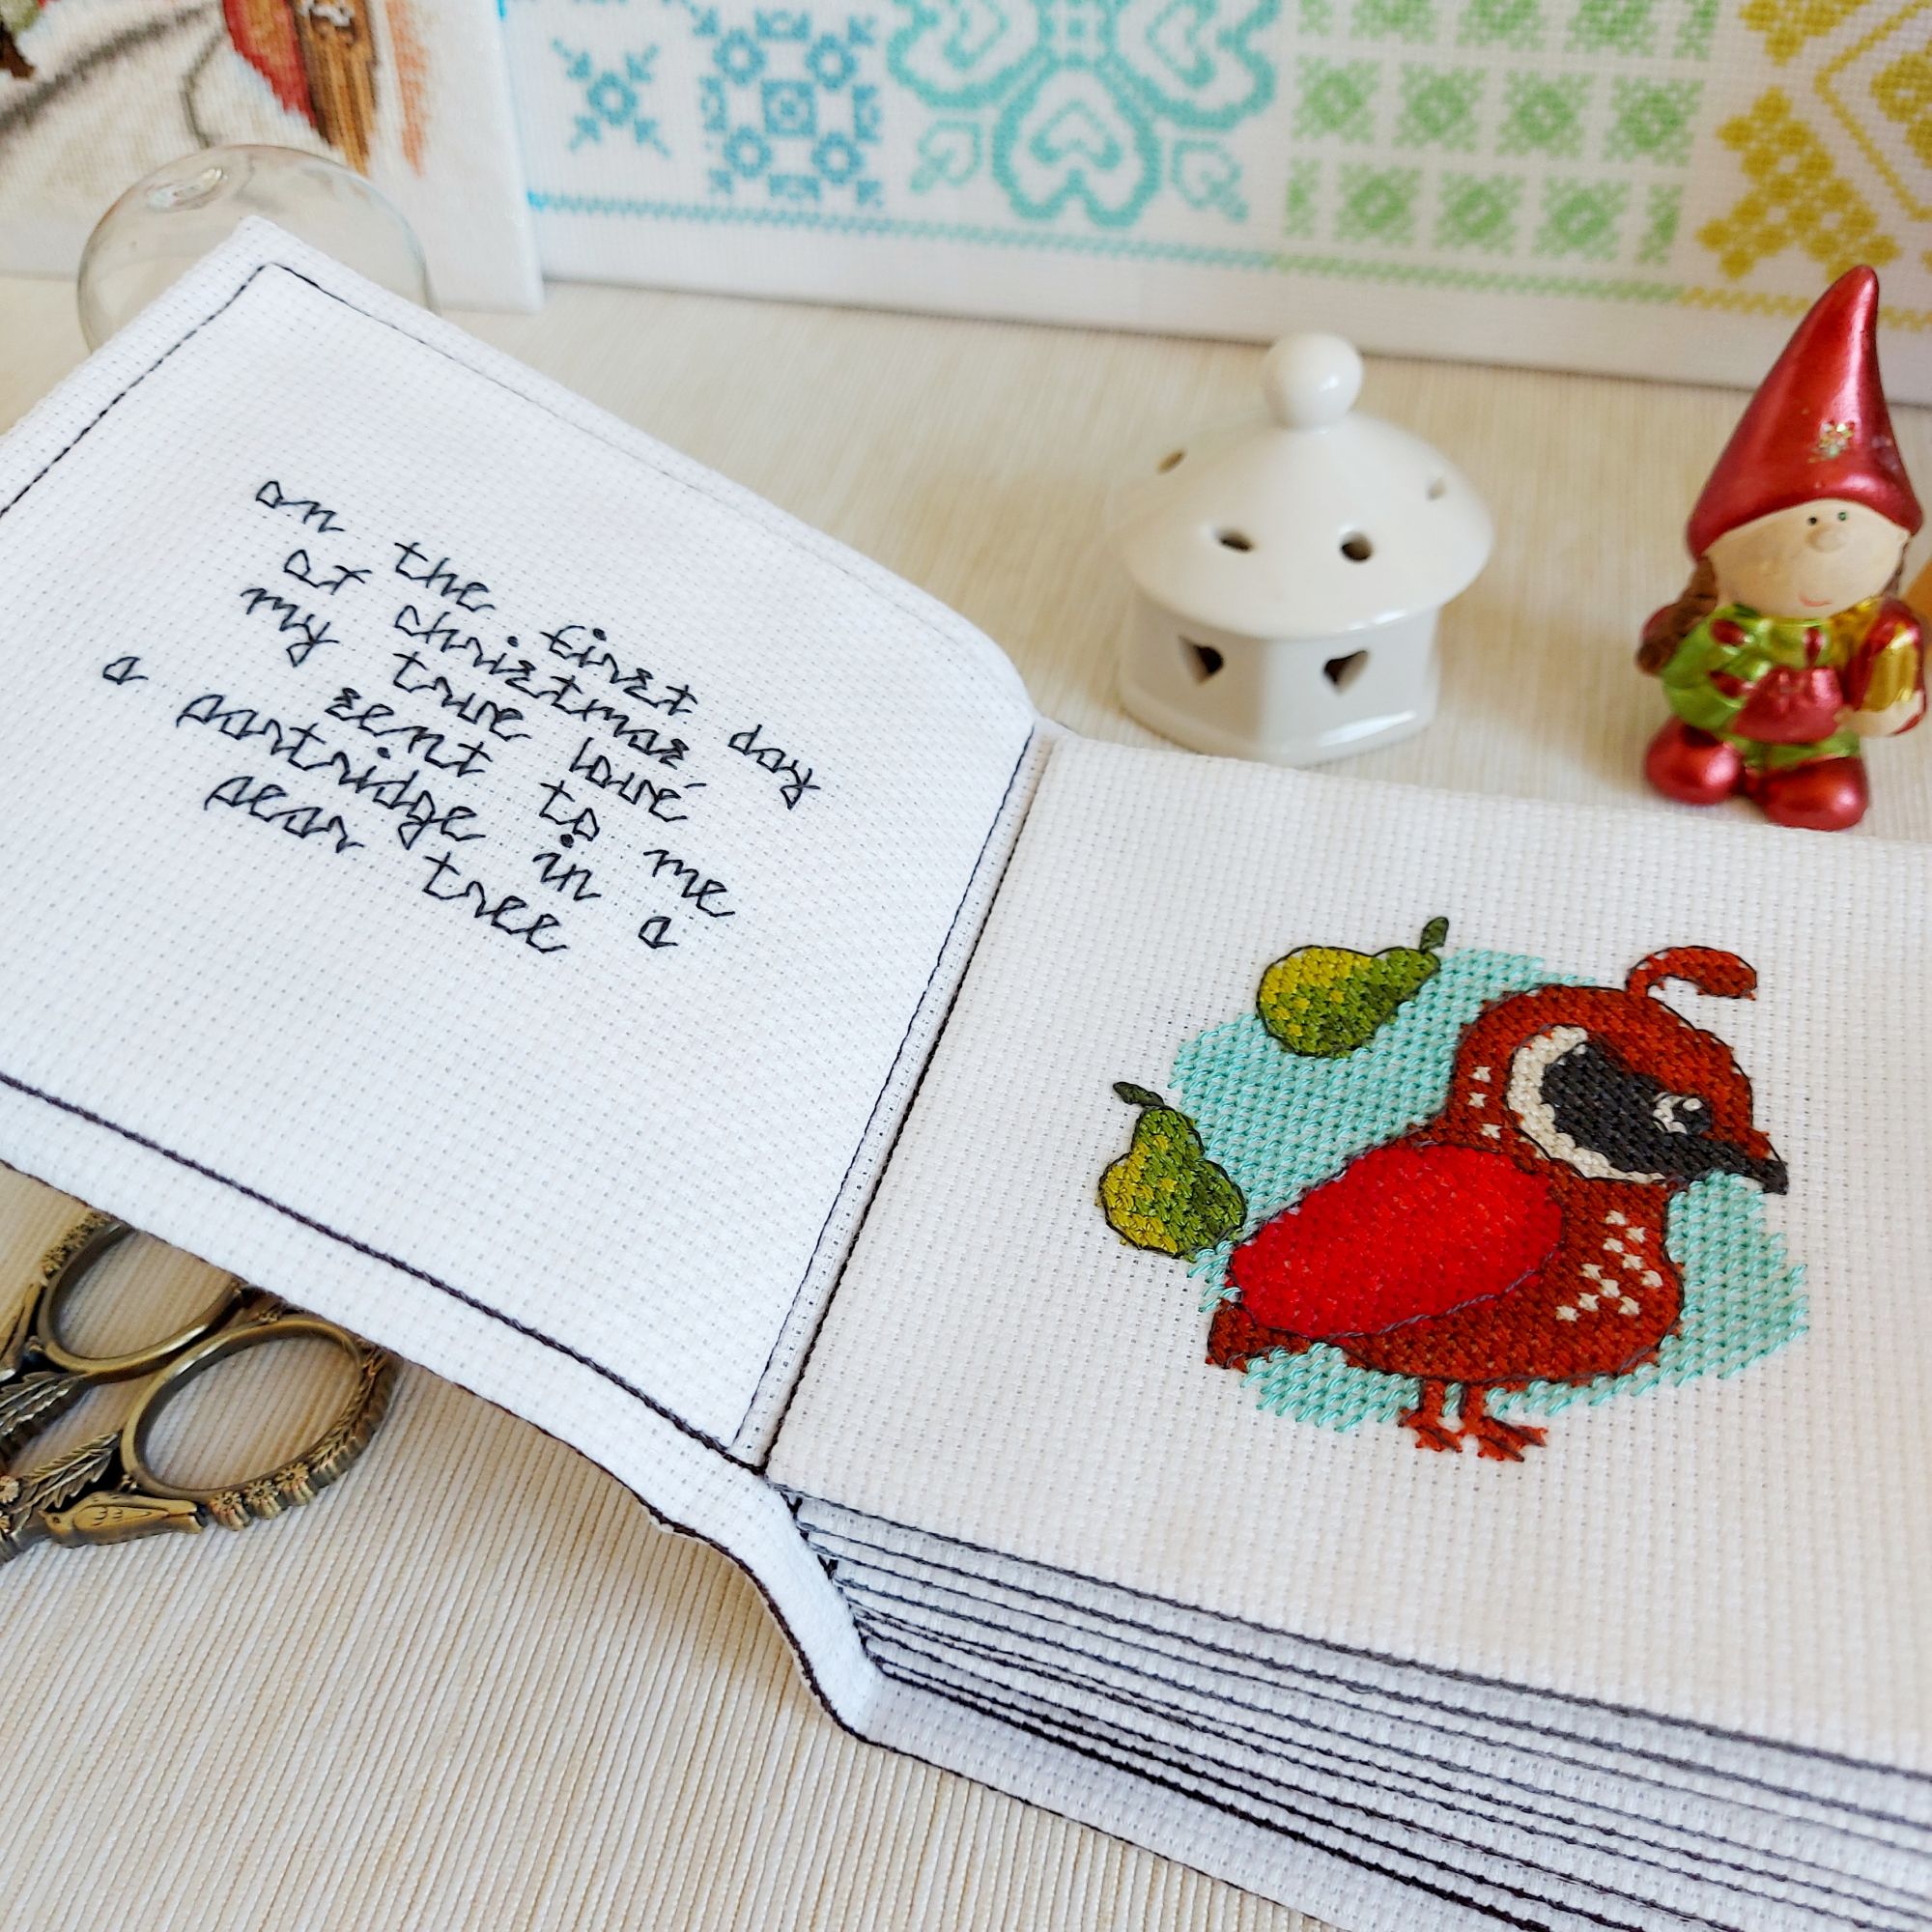 on the first day
of christmas
my true love
sent to me
a partridge in a
pear tree